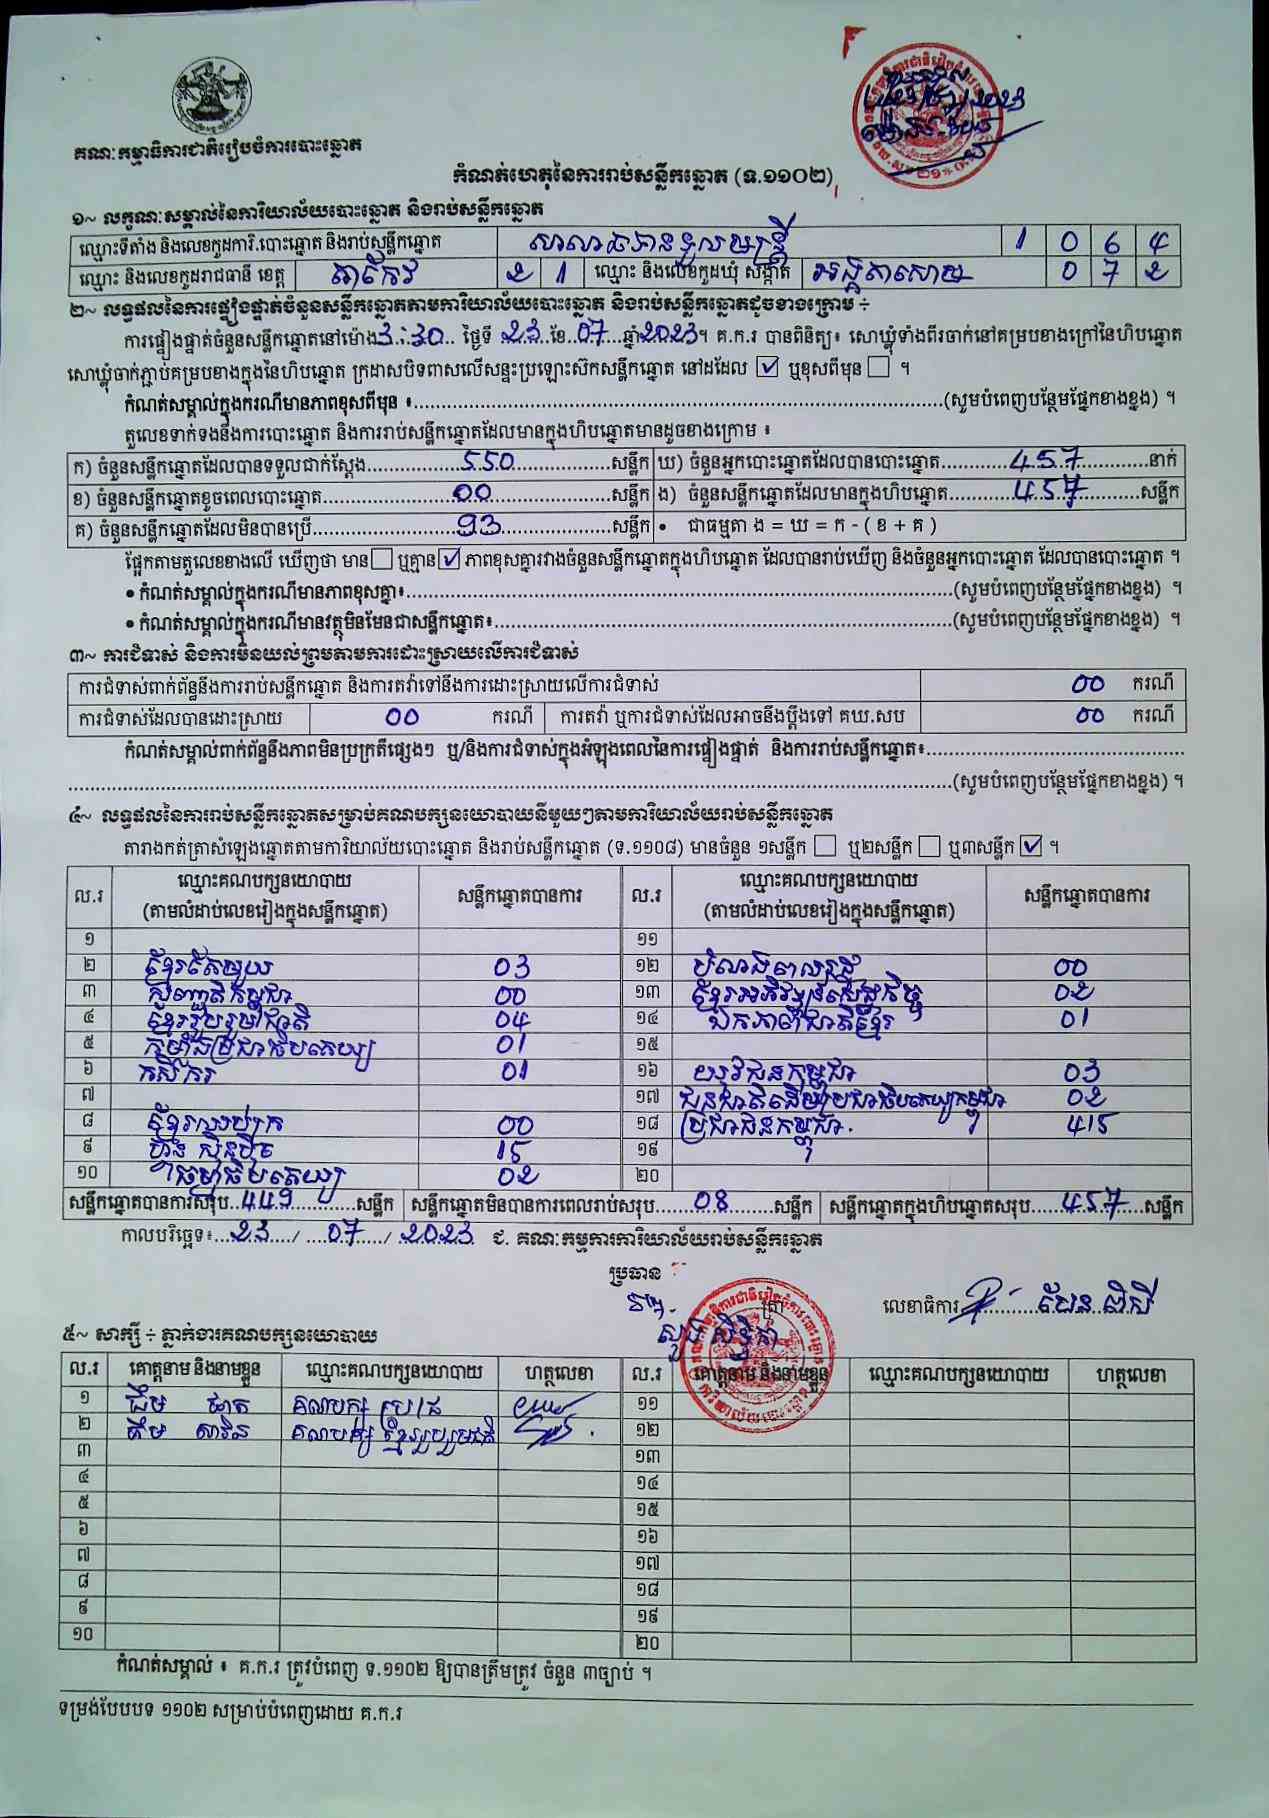 គណៈកម្មាធិការជាតិរៀបចំការបោះឆ្នោត
កំណត់ហេតុនៃការរាប់សន្លឹកឆ្នោត (ទ.១១០២)
១~ លក្ខណៈសម្គាល់នៃការិយាល័យបោះឆ្នោត និងរាប់សន្លឹកឆ្នោត
ឈ្មោះទីតាំង និងលេខកូដការិ.បោះឆ្នោត និងរាប់សន្លឹកឆ្នោត 1 0 6 4
ឈ្មោះ និងលេខកូដរាជធានី ខេត្ត តាកែវ 2 1 ឈ្មោះ និងលេខកូដឃុំ សង្កាត់ អង្គតាសោម 0 7 2
២~ លទ្ធផលនៃការផ្ទៀងផ្ទាត់ចំនួនសន្លឹកឆ្នោតតាមការិយាល័យបោះឆ្នោត និងរាប់សន្លឹកឆ្នោតដូចខាងក្រោម ÷
ការផ្ទៀងផ្ទាត់ចំនួនសន្លឹកឆ្នោតនៅម៉ោង 3:30 ថ្ងៃទី 23 ខែ 07 ឆ្នាំ 2023 ។ គ.ក.រ បានពិនិត្យ៖ សោឃ្លុំទាំងពីរចាក់នៅគម្របខាងក្រៅនៃហិបឆ្នោត
សោឃ្លុំចាក់ភ្ជាប់គម្របខាងក្នុងនៃហិបឆ្នោត ក្រដាសបិទពាសលើសន្ទះប្រឡោះស៊កសន្លឹកឆ្នោត នៅដដែល ☑ ឬខុសពីមុន ☐ ។
កំណត់សម្គាល់ក្នុងករណីមានភាពខុសពីមុន ៖ (សូមបំពេញបន្ថែមផ្នែកខាងខ្នង) ។
តួលេខទាក់ទងនឹងការបោះឆ្នោត និងការរាប់សន្លឹកឆ្នោតដែលមានក្នុងហិបឆ្នោតមានដូចខាងក្រោម ៖
ក) ចំនួនសន្លឹកឆ្នោតដែលបានទទួលជាក់ស្តែង 550 សន្លឹក ឃ) ចំនួនអ្នកបោះឆ្នោតដែលបានបោះឆ្នោត 457 នាក់
ខ) ចំនួនសន្លឹកឆ្នោតខូចពេលបោះឆ្នោត 00 សន្លឹក ង) ចំនួនសន្លឹកឆ្នោតដែលមានក្នុងហិបឆ្នោត 457 សន្លឹក
គ) ចំនួនសន្លឹកឆ្នោតដែលមិនបានប្រើ 93 សន្លឹក • ជាធម្មតា ង = ឃ = ក - ( ខ + គ )
ផ្អែកតាមតួលេខខាងលើ ឃើញថា មាន ☐ ឬគ្មាន ☑ ភាពខុសគ្នារវាងចំនួនសន្លឹកឆ្នោតក្នុងហិបឆ្នោត ដែលបានរាប់ឃើញ និងចំនួនអ្នកបោះឆ្នោត ដែលបានបោះឆ្នោត ។
• កំណត់សម្គាល់ក្នុងករណីមានភាពខុសគ្នា៖ (សូមបំពេញបន្ថែមផ្នែកខាងខ្នង) ។
• កំណត់សម្គាល់ក្នុងករណីមានវត្ថុមិនមែនជាសន្លឹកឆ្នោត៖ (សូមបំពេញបន្ថែមផ្នែកខាងខ្នង) ។
៣~ ការជំទាស់ និងការមិនយល់ព្រមតាមការដោះស្រាយលើការជំទាស់
ការជំទាស់ពាក់ព័ន្ធនឹងការរាប់សន្លឹកឆ្នោត និងការតវ៉ាទៅនឹងការដោះស្រាយលើការជំទាស់ 00 ករណី
ការជំទាស់ដែលបានដោះស្រាយ 00 ករណី ការតវ៉ា ឬការជំទាស់ដែលអាចនឹងប្តឹងទៅ គឃ.សប 00 ករណី
កំណត់សម្គាល់ពាក់ព័ន្ធនឹងភាពមិនប្រក្រតីផ្សេងៗ ឬ/និងការជំទាស់ក្នុងអំឡុងពេលនៃការផ្ទៀងផ្ទាត់ និងការរាប់សន្លឹកឆ្នោត៖
(សូមបំពេញបន្ថែមផ្នែកខាងខ្នង) ។
៤~ លទ្ធផលនៃការរាប់សន្លឹកឆ្នោតសម្រាប់គណបក្សនយោបាយនីមួយៗតាមការិយាល័យរាប់សន្លឹកឆ្នោត
តារាងកត់ត្រាសំឡេងឆ្នោតតាមការិយាល័យបោះឆ្នោត និងរាប់សន្លឹកឆ្នោត (ទ.១១០៨) មានចំនួន ១សន្លឹក ☐ ឬ២សន្លឹក ☐ ឬ៣សន្លឹក ☑ ។
ល.រ ឈ្មោះគណបក្សនយោបាយ (តាមលំដាប់លេខរៀងក្នុងសន្លឹកឆ្នោត) សន្លឹកឆ្នោតបានការ ល.រ ឈ្មោះគណបក្សនយោបាយ (តាមលំដាប់លេខរៀងក្នុងសន្លឹកឆ្នោត) សន្លឹកឆ្នោតបានការ
១ ១១
២ ខ្មែរតែមួយ 03 ១២ 00
៣ សញ្ជាតិកម្ពុជា 00 ១៣ ខ្មែរអភិវឌ្ឍន៍សេដ្ឋកិច្ច 02
៤ ខ្មែររួបរួមជាតិ 04 ១៤ ឯកភាពជាតិខ្មែរ 01
៥ កម្លាំងប្រជាធិបតេយ្យ 01 ១៥
៦ កសិករ 01 ១៦ យុវជនកម្ពុជា 03
៧ ១៧ ជនជាតិដើមប្រជាធិបតេយ្យកម្ពុជា 02
៨ ខ្មែរឈប់ក្រ 00 ១៨ ប្រជាជនកម្ពុជា 415
៩ ហ៊្វុនស៊ិនប៉ិច 15 ១៩
១០ ធម្មាធិបតេយ្យ 02 ២០
សន្លឹកឆ្នោតបានការសរុប 449 សន្លឹក សន្លឹកឆ្នោតមិនបានការពេលរាប់សរុប 08 សន្លឹក សន្លឹកឆ្នោតក្នុងហិបឆ្នោតសរុប 457 សន្លឹក
កាលបរិច្ឆេទ៖ 23 / 07 / 2023 ជ. គណៈកម្មការការិយាល័យរាប់សន្លឹកឆ្នោត
ប្រធាន
ត្រា លេខាធិការ
៥~ សាក្សី ÷ ភ្នាក់ងារគណបក្សនយោបាយ
ល.រ គោត្តនាម និងនាមខ្លួន ឈ្មោះគណបក្សនយោបាយ ហត្ថលេខា ល.រ គោត្តនាម និងនាមខ្លួន ឈ្មោះគណបក្សនយោបាយ ហត្ថលេខា
១ គណបក្ស ១១
២ គណបក្ស ខ្មែររួបរួមជាតិ ១២
៣ ១៣
៤ ១៤
៥ ១៥
៦ ១៦
៧ ១៧
៨ ១៨
៩ ១៩
១០ ២០
កំណត់សម្គាល់ ៖ គ.ក.រ ត្រូវបំពេញ ទ.១១០២ ឱ្យបានត្រឹមត្រូវ ចំនួន ៣ច្បាប់ ។
ទម្រង់បែបបទ ១១០២ សម្រាប់បំពេញដោយ គ.ក.រ